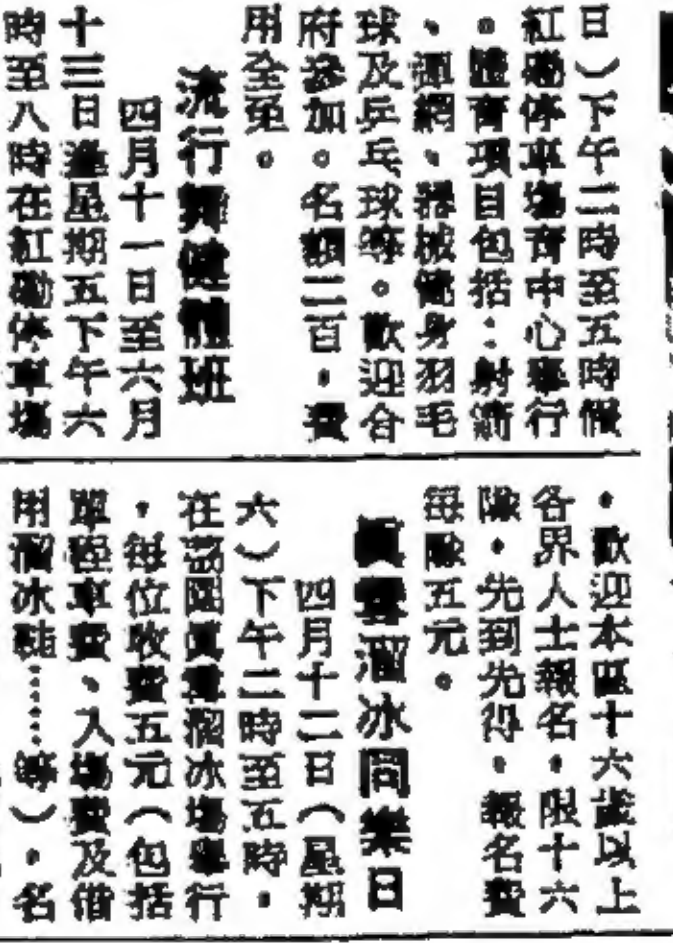 日︶下午二時至五時假
紅磡停車場育中心舉行
。體育項目包括：射箭
、彈網、器械健身羽毛
球及乒乓球等。歡迎合
府參加。名額二百，費
用全免。
流行舞健體班
四月十一日至六月
十三日逢星期五下午六
時至八時在紅磡停車場
，歡迎本區十六歲以上
各界人士報名，限十六
隊，先到先得，報名費
每隊五元。
真雪溜冰同樂日
四月十二日︵星期
六︶下午二時至五時，
在荔園真雪溜冰場舉行
，每位收費五元︵包括
單程車費、入場費及借
用溜冰鞋……等︶，名